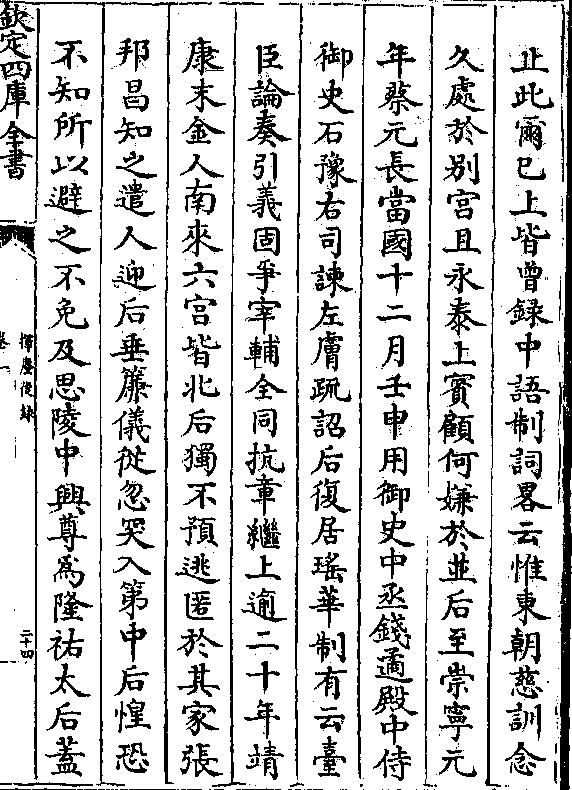 止此爾已上皆曾録中語制詞畧云惟東朝慈訓念
久處於別宮且永泰上賓顧何嫌於並后至崇寧元
年蔡元長當國十二月壬申用御史中丞錢遹殿中侍
御史石豫右司諫左膚疏詔后復居瑤華制有云臺
臣論奏引義固爭宰輔全同抗章繼上逾二十年靖
康末金人南來六宮皆北后獨不預逃匿於其家張
邦昌知之遣人迎后垂簾儀從忽突入第中后惶恐
不知所以避之不免及思陵中興尊爲隆祐太后蓋
欽定四庫全書
揮麈後録
卷一
二十四